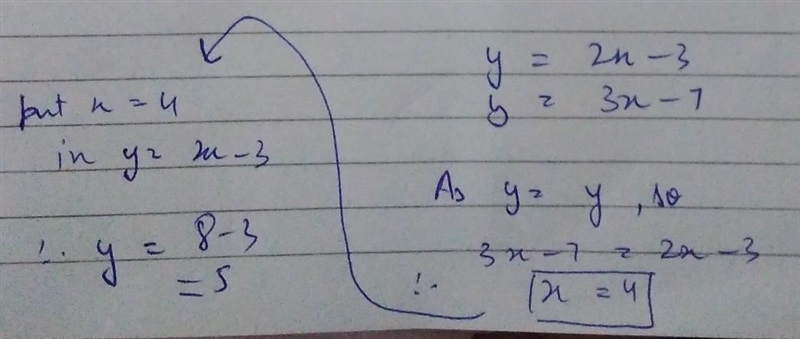 y = 2x - 3
y = 3x - 7
As y = y , so
3x - 7 = 2x - 3
∴ x = 4
put x = 4
in y = 2x - 3
∴ y = 8 - 3
= 5